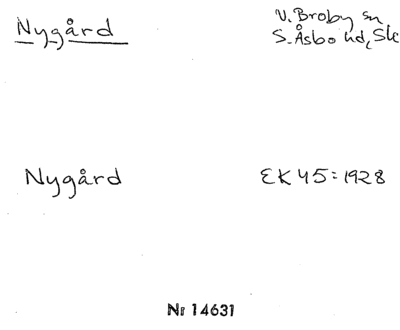 Nygård
V. Broby sn
S. Åsbo hd, Sk
Nygård EK 45 = 1928
Nr 14631